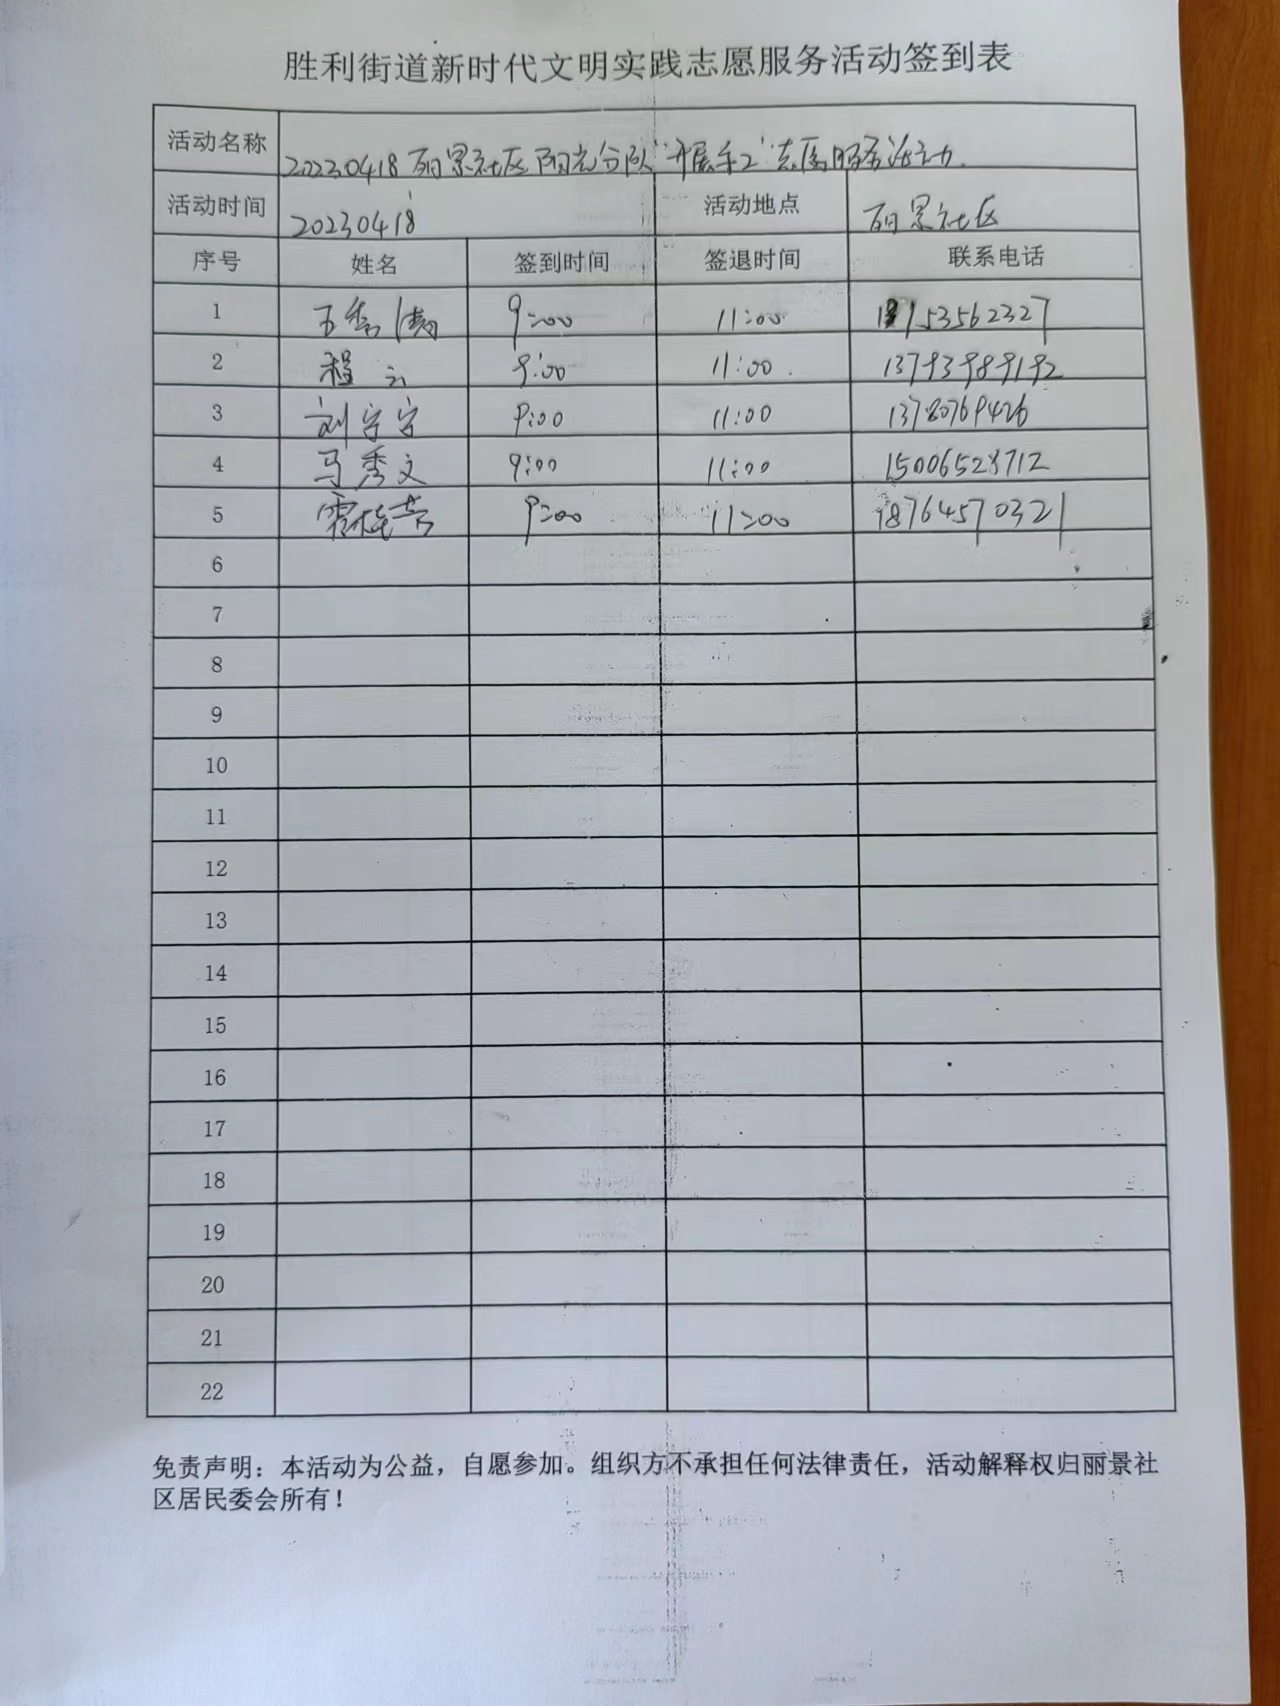 胜利街道新时代文明实践志愿服务活动签到表
活动名称 20230418丽景社区阳光分队"开展手工"志愿服务活动.
活动时间 20230418 活动地点 丽景社区
序号 姓名 签到时间 签退时间 联系电话
1 王秀清 9:00 11:00 18953562327
2 程云 9:00 11:00. 13793989192
3 刘宁宁 9:00 11:00 13780769426
4 马秀文 9:00 11:00 15006528712
5 9:00 11:00 18764570321
6
7
8
9
10
11
12
13
14
15
16
17
18
19
20
21
22
免责声明：本活动为公益，自愿参加。组织方不承担任何法律责任，活动解释权归丽景社
区居民委会所有！